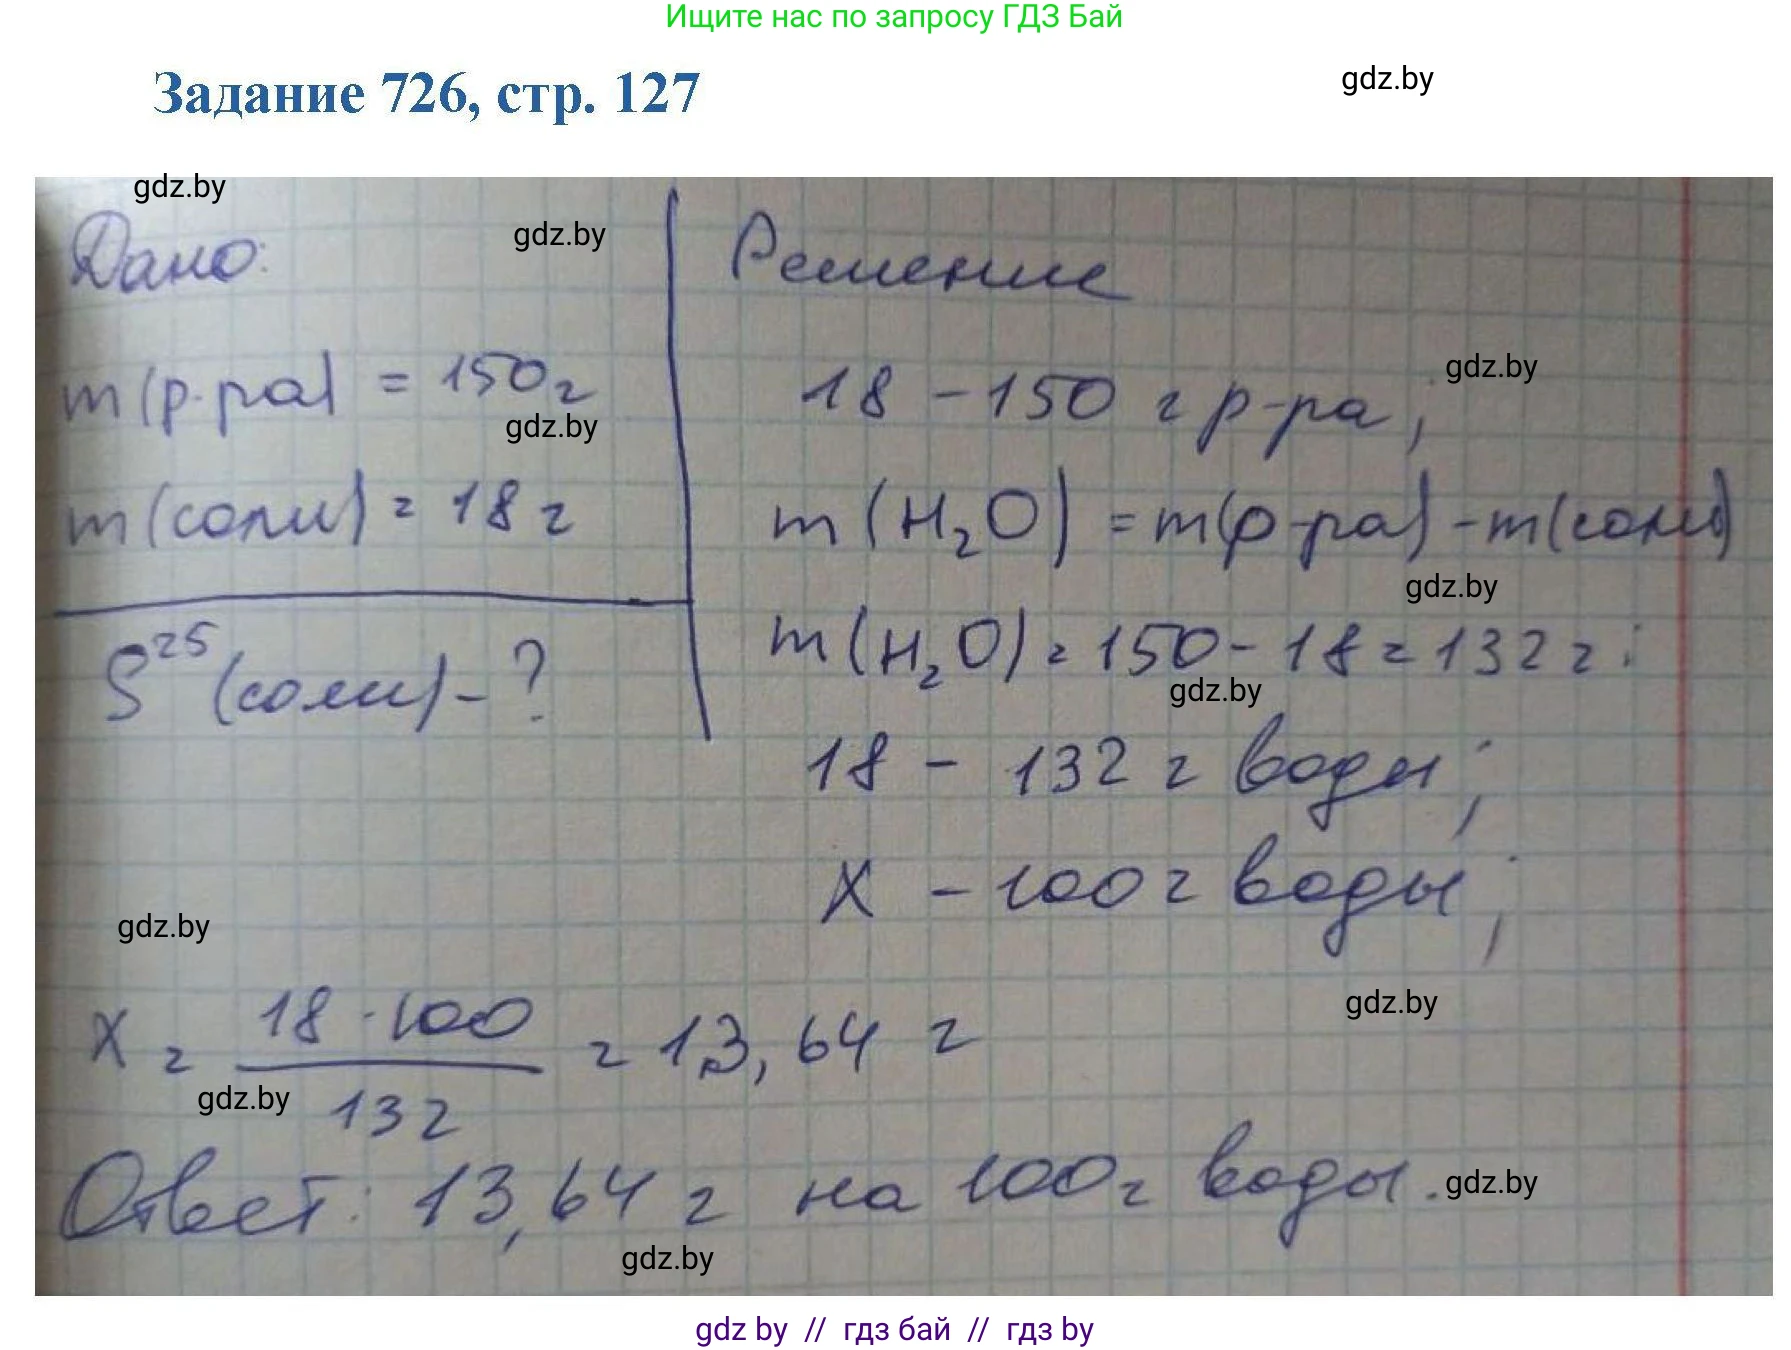 Ищите нас по запросу ГДЗ Бай
Задание 726, стр. 127
gdz.by
gdz.by
Дано:
gdz.by
Решение
m(р-ра) = 150 г
gdz.by
18 - 150 г р-ра;
gdz.by
m(соли) = 18 г
m(H₂O) = m(р-ра) - m(соли)
gdz.by
S²⁵(соли) - ?
m(H₂O) = 150 - 18 = 132 г;
gdz.by
18 - 132 г воды;
X - 100 г воды;
gdz.by
gdz.by
X = 18 · 100 / 132 = 13,64 г
gdz.by
Ответ: 13,64 г на 100 г воды.
gdz.by
gdz.by
gdz by // гдз бай // гдз by